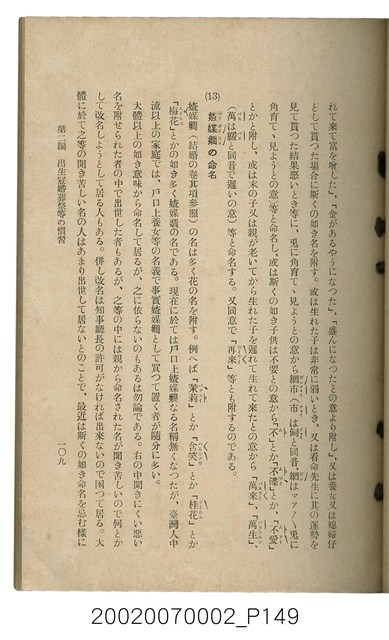 れて來て富を增した」、「金があるやうになつた」、「盛んになつたとの意より附し、又は養女又は媳婦仔
として買つた場合に斯くの如き名を附す。或は生れた子は非常に弱いとき、又は看命先生に其の運勢を
見て貰つた結果惡いとき等に、兎に角育て、見ようとの意から網市(市は飼と同音、網はマアノ〱兎に
角育て、見ようとの意)等と命名し、或は斯くの如き子供は不要との意から「不」とか「不
とかと附し、或は末の子又は親が老いてから生れた子を遲れて生れて來たとの意から「萬來」、「萬生」、
(萬は緩と同音で遲いの意)等と命名する。又同意で「再來」等とも附するのである。
(13) 媒嫺の命名
媒嫺(結婚の卷其項參照)の名は多く花の名を附す。例へば「茉莉」とか「含笑」とか「桂花」とか
「梅花」とかの如き多く媒嫺の名である。現在に於ては戶口上媒嫺なる名稱無くなつたが、臺灣人中
流以上の家庭では、戶口上養女等の名義で事實媒嫺として買つて置く者が隨分に多い。
大體以上の如き意味から命名して居るが、之に依らないのもあるは勿論である。右の中聞きにくい惡い
名を附せられた者の中で出世した者もあるが、之等の中には親から命名された名が聞き苦しいので何とか
して改名しようとして居る人もある。併し改名は知事廳長の許可がなければ出來ないので困つて居る。大
體に於て之等の聞き苦しい名の人はあまり出世して居ないとのことで、最近は斯くの如き命名を忌む樣に
第二編 出生冠婚葬祭等の慣習
一〇九
20020070002_P149